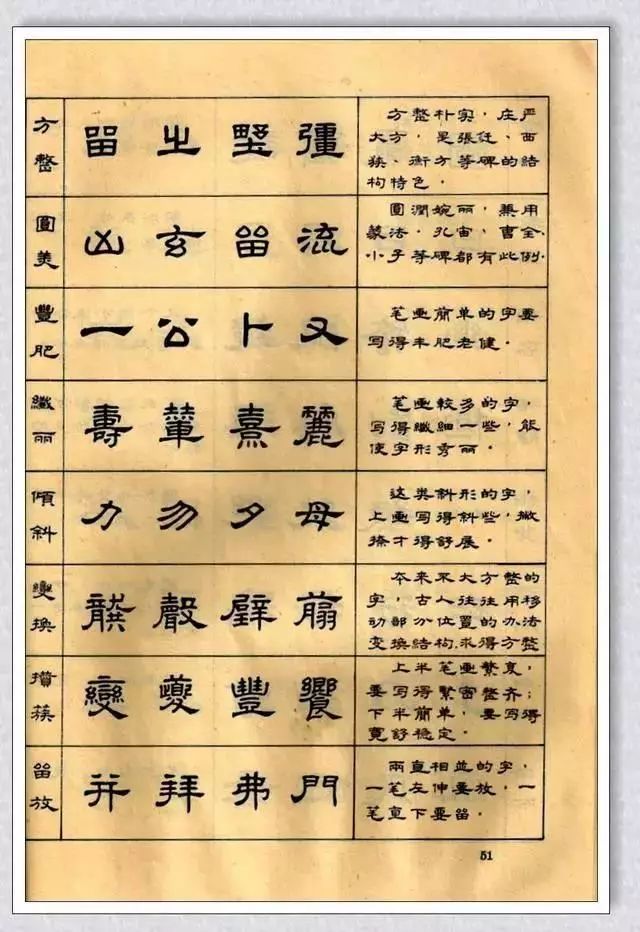 方整
留 之 彊
方整朴实，庄严
大方，是張迁、西
狹、衡方等碑的結
构特色。
圓美
凶 玄 留 流
圓潤婉丽，兼用
篆法，孔宙，曹全，
小子等碑都有此例．
豐肥
一 公 卜 又
笔画简单的字要
写得丰肥老健。
纖丽
壽 熹 麗
笔画較多的字，
写得纖細一些，能
使字形秀丽。
傾斜
力 勿 夕 母
这类斜形的字，
上画写得斜些，撇
捺才得舒展。
变换
本来不大方整的
字，古人往往用移
动部分位置的办法
变换結构，求得方整
攢蔟
變 夔 豐 饗
上半笔画繁复，
要写得紧密整齐；
下半简单，要写得
宽舒稳定。
留放
并 拜 弗 門
兩直相並的字，
一笔左伸要放，一
笔直下要留。
51